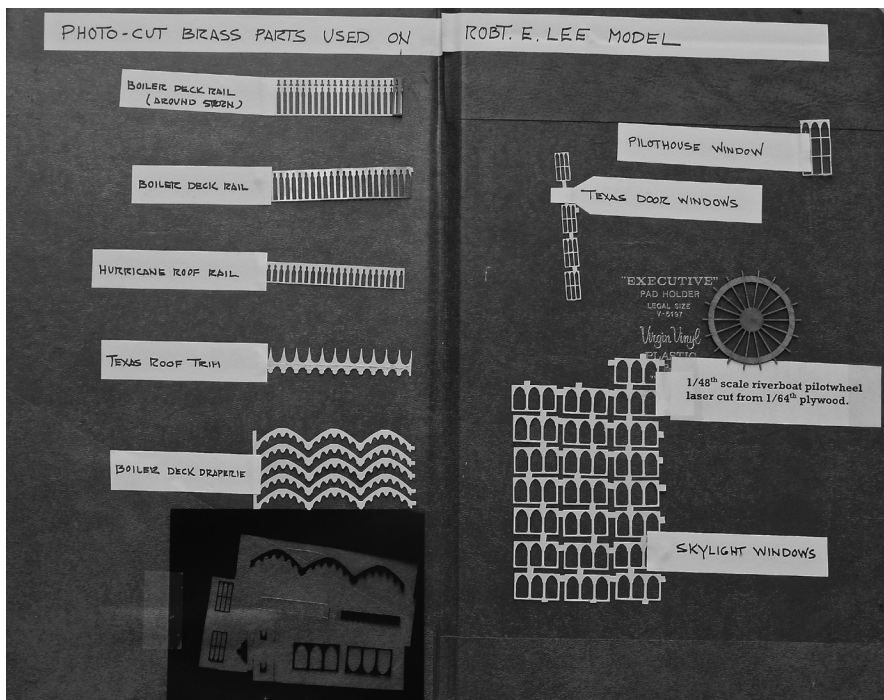 PHOTO-CUT BRASS PARTS USED ON ROBT. E. LEE MODEL
BOILER DECK RAIL
(AROUND STERN)
BOILER DECK RAIL
HURRICANE ROOF RAIL
TEXAS ROOF TRIM
BOILER DECK DRAPERIE
PILOTHOUSE WINDOW
TEXAS DOOR WINDOWS
"EXECUTIVE"
PAD HOLDER
LEGAL SIZE
V-5197
Virgin Vinyl
PLASTIC
1/48th scale riverboat pilotwheel
laser cut from 1/64th plywood.
SKYLIGHT WINDOWS